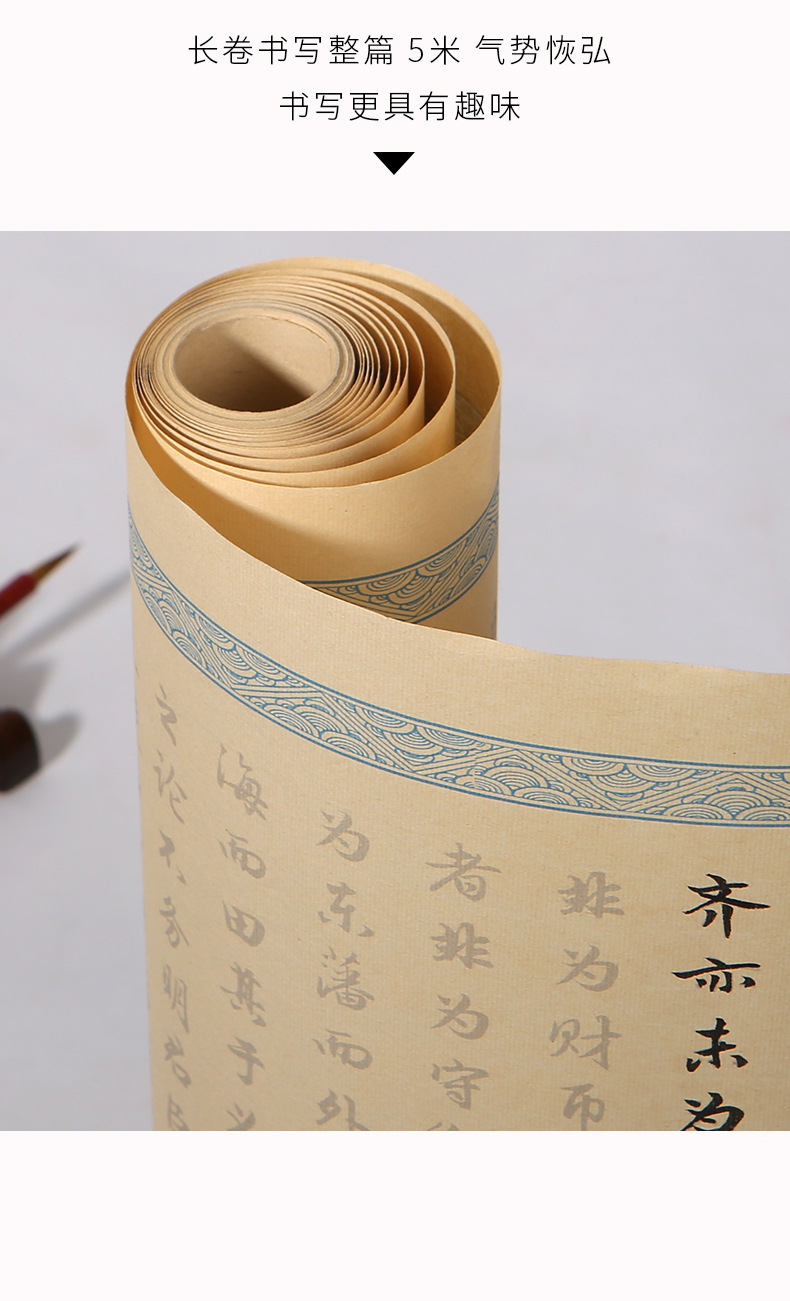 长卷书写整篇 5米 气势恢弘
书写更具有趣味
齐亦未为
非为财币
者非为守
为东藩而外
海而田其于义
之论不务明君臣